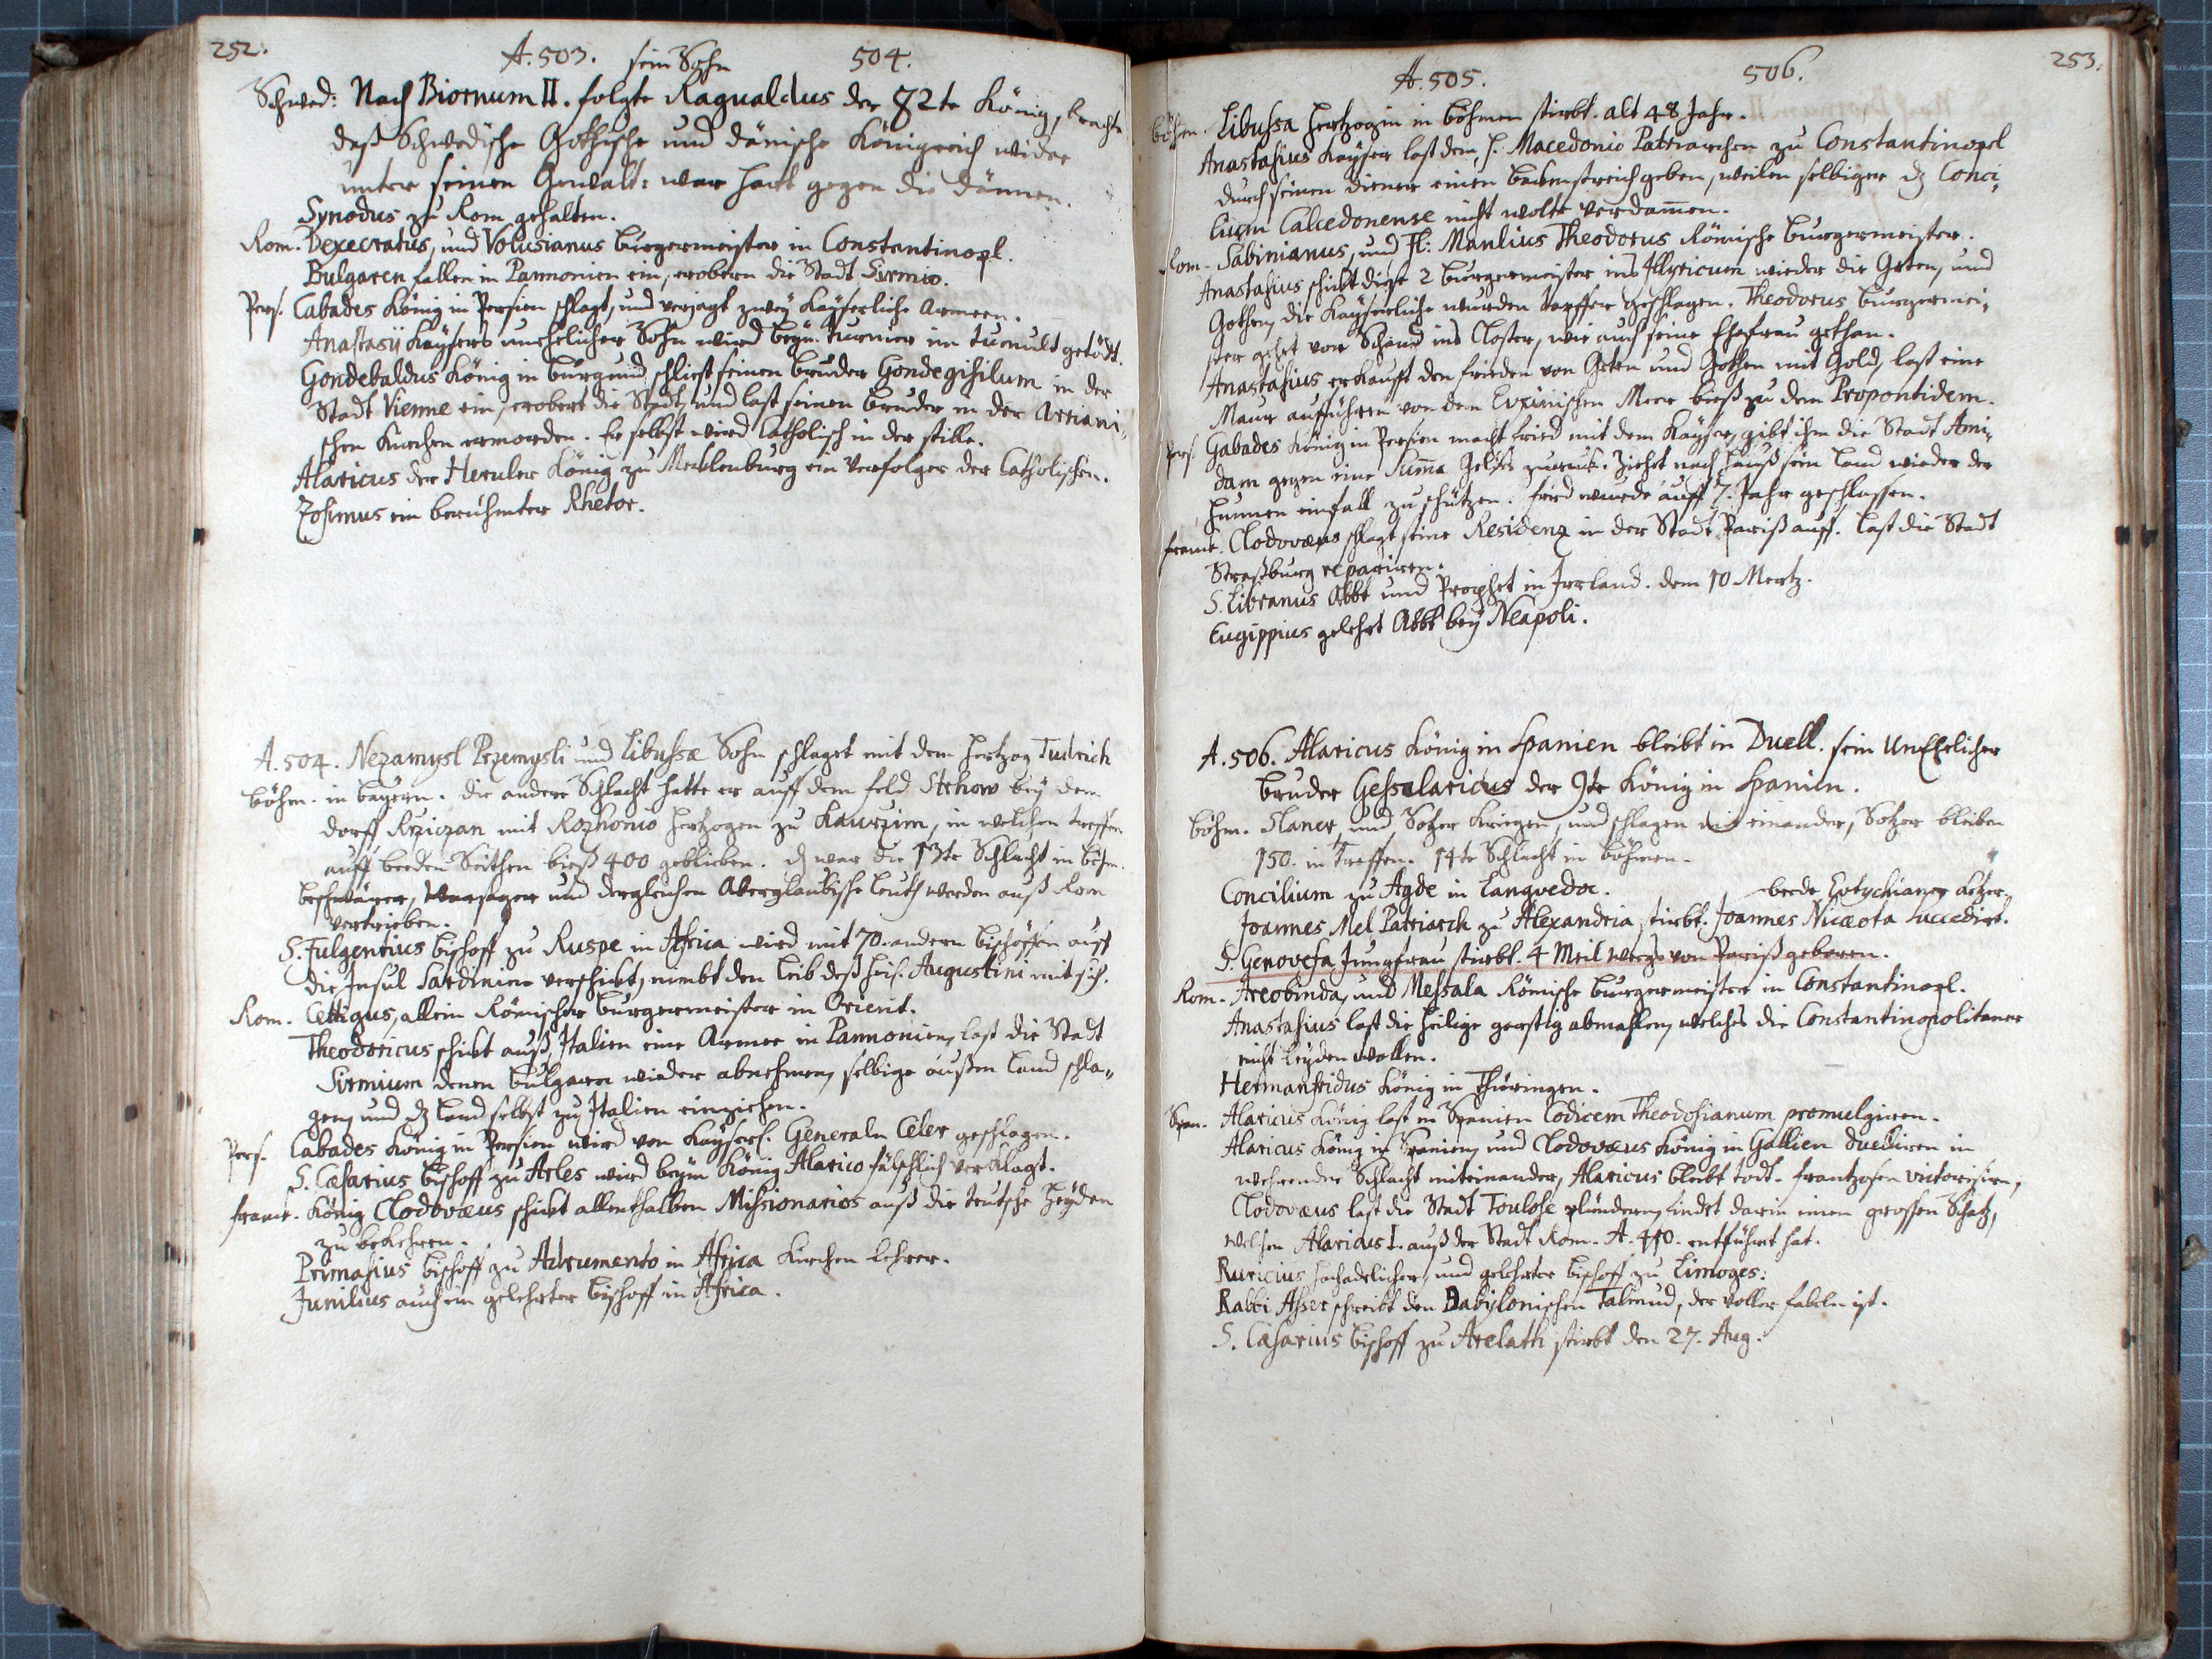 252.
A. 503. sein Sohn 504.
Schwed: Nach Biornum II. folgte Ragualdus der 82te König, brachte
daß Schwedische Gothische und dänische Königreich wider
unter seinen Gewalt: war hart gegen die Dännen.
Synodus zu Rom gehalten.
Rom. Dexecratus, und Volusianus burgermeister in Constantinopl.
Bulgaren fallen in Pannonien ein, erobern die Stadt Sirmio.
Pers. Cabades König in Persien schlagt, und verjagt zweÿ Kaÿserliche Armeen.
Anastasij Kaÿsers unehelicher Sohn wird beÿm turnier im tumult getödt.
Gondebaldus König in burgund schliest seinen bruder Gondegisilum in der
Stadt Vienne ein, erobert die Stadt, und last seinen bruder in der Arriani„
schen Kirchen ermorden. Er selbst wird Catholisch in der stille.
Alaricus der Heruler König zu Mecklenburg ein Verfolger der Catholischen.
Zosimus ein berühmter Rhetor.
A. 504. Nezamysl Przemysli und Libussæ Sohn schlaget mit dem Hertzog Tudrich
böhm. in bayern. die andere Schlacht hatte er auff dem feld Stehow beÿ dem
dorff Krziczan mit Rozhonio Hertzogen zu Kaurzim, in welchen treffen
auff beeden Seithen bieß 400 geblieben. dz war die 13te Schlacht in böhm.
beschwärer, Warsager und dergleichen Aberglaubische leuth werden auß Rom
vertrieben.
S. Fulgentius bischoff zu Ruspe in Africa wird mit 70. andern bischöffen auff
die Insul Sardinien verschickt, nimbt den leib deß heil. Augustini mit sich.
Rom. Cettigus, allein Römischer burgermeister in Orient.
Theodoricus schickt auß Italien eine Armee in Pannonien, last die Stadt
Sirmium denen bulgarn wieder abnehmen, selbige außen land schla„
gen, und dz land selbst zu Italien einziehen.
Pers. Cabades König in Persien wird von Kaÿserl. Generaln Celer geschlagen.
S. Cæsarius bischoff zu Arles wird beÿm König Alarico fälschlich verklagt.
franc. König Clodovæus schickt allenthalben Missionarios auß die teutsche Heÿden
zu bekehren.
Primasius bischoff zu Adrumento in Africa Kirchen lehrer.
Junilius auch ein gelehrter bischoff in Africa.
A. 505. 506. 253.
böhm. Libussa Hertzogin in böhmen stirbt. alt 48 Jahr.
Anastasius Kaÿser last dem H. Macedonio Patriarchen zu Constantinopel
durch seinen diener einen backenstreich geben, weilen selbiger dz Conci„
lium Calcedonense nicht wolte verdam̄en.
Rom. Sabinianus, und Fl: Manlius Theodorus Römische burgermeister.
Anastasius schickt diese 2 burgermeister ins Illyricum wieder die Geten, und
Gothen, die Kaÿserliche wurden dapffer geschlagen. Theodorus burgermei„
ster gehet vor Schand ins Closter, wie auch seine Ehefrau gethan.
Anastasius erkaufft den frieden von Geten und Gothen mit Gold, last eine
Maur aufführen von dem Euxinischen Meer bieß zu dem Propontidem.
Pers. Gabades König in Persien macht fried mit dem Kaÿser, gibt ihm die Stadt Ami„
dam gegen eine Sum̄a Geldes zuruck. Ziehet nach Hauß sein land wieder der
Hunnen einfall zu schützen. fried wurde auff 7. Jahr geschlossen.
franc. Clodovæus schlagt seine Residenz in der Stadt Pariß auff. last die Stadt
Straßburg repariren.
S. Libranus Abbt und Prophet in Irrland. dem 10 Mertz.
Eugippius gelehrt Abbt beÿ Neapoli.
A. 506. Alaricus König in Spanien bleibt in Duell. sein UnEhelicher
bruder Gessalaricus der 9te König in Spanien.
böhm. Slaner, und Satzer kriegen, und schlagen mit einander, Satzer bleiben
150. in treffen. 14te Schlacht in böhmen.
Concilium zu Agde in Langvedoc.
beede Eutychianer ketzer.
Joannes Mel Patriarch zu Alexandria stirbt. Joannes Nicæota Succedirt.
S. Genovefa Jungfrau stirbt. 4 Meil wegs von Pariß gebohren.
Rom. Areobinda, und Messala Römische burgermeister in Constantinopl.
Anastasius last die Heilige garstig abmahlen, welches die Constantinopolitaner
nicht leÿden wollen.
Hermanfridus König in Thüringen.
Span. Alaricus König last in Spanien Codicem Theodosianum promulgiren.
Alaricus König in Spanien, und Clodovæus König in Gallien duelliren in
wehrender Schlacht miteinander, Alaricus bleibt todt. frantzosen victorisiren,
Clodovæus last die Stadt Toulose plündern, findet darin einen grossen Schatz,
welchen Alaricus I. auß der Stadt Rom. A. 410. entführt hat.
Ruricius hochadelicher, und gelehrter bischoff zu Limoges:
Rabbi Asser schreibt den Babylonischen Talmud, der voller fabeln ist.
S. Cæsarius bischoff zu Arelath stirbt den 27. Aug.